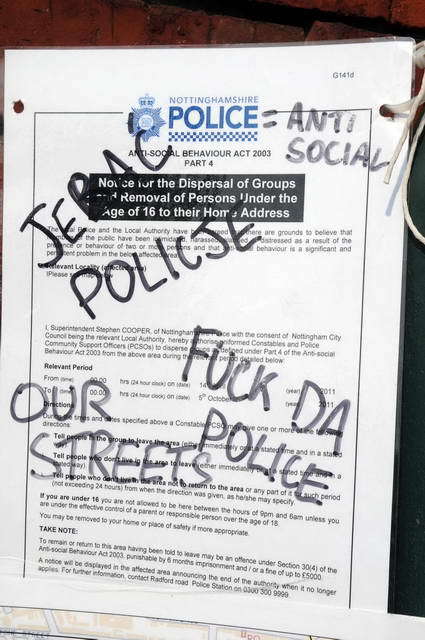 G141d
NOTTINGHAMSHIRE
POLICE = ANTI SOCIAL
ANTI-SOCIAL BEHAVIOUR ACT 2003
PART 4
Notice for the Dispersal of Groups
and Removal of Persons Under the
Age of 16 to their Home Address
JEBAC
POLICJE
Relevant Locality (affected area)
I, Superintendent Stephen COOPER, of Nottinghamshire with the consent of Nottingham City
Council being the relevant Local Authority, hereby authorise uniformed Constables and Police
Community Support Officers (PCSOs) to disperse as defined under Part 4 of the Anti-social
Behaviour Act 2003 from the above area during the period detailed below:
Relevant Period
From (time) 00.00 hrs (24 hour clock) on (date) 14 (year) 2011
To (time) 00.00 hrs (24 hour clock) on (date) 5th October (year) 2011
FUCK DA
POLICE
OUR
STREETS
Directions
During the times and dates specified above a Constable/PCSO may give one or more of the following
directions:
Tell people in the group to leave the area (either immediately or at a stated time and in a stated
way)
Tell people who don't live in the area to leave (either immediately or at a stated time and in a
stated way)
Tell people who don't live in the area not to return to the area or any part of it for such period
(not exceeding 24 hours) from when the direction was given, as he/she may specify
If you are under 16 you are not allowed to be here between the hours of 9pm and 6am unless you
are under the effective control of a parent or responsible person over the age of 18.
You may be removed to your home or place of safety if more appropriate.
TAKE NOTE:
To remain or return to this area having been told to leave may be an offence under Section 30(4) of the
Anti-social Behaviour Act 2003, punishable by 6 months imprisonment and / or a fine of up to £5000.
A notice will be displayed in the affected area announcing the end of the authority when it no longer
applies. For further information, contact Radford road. Police Station on 0300 300 9999.